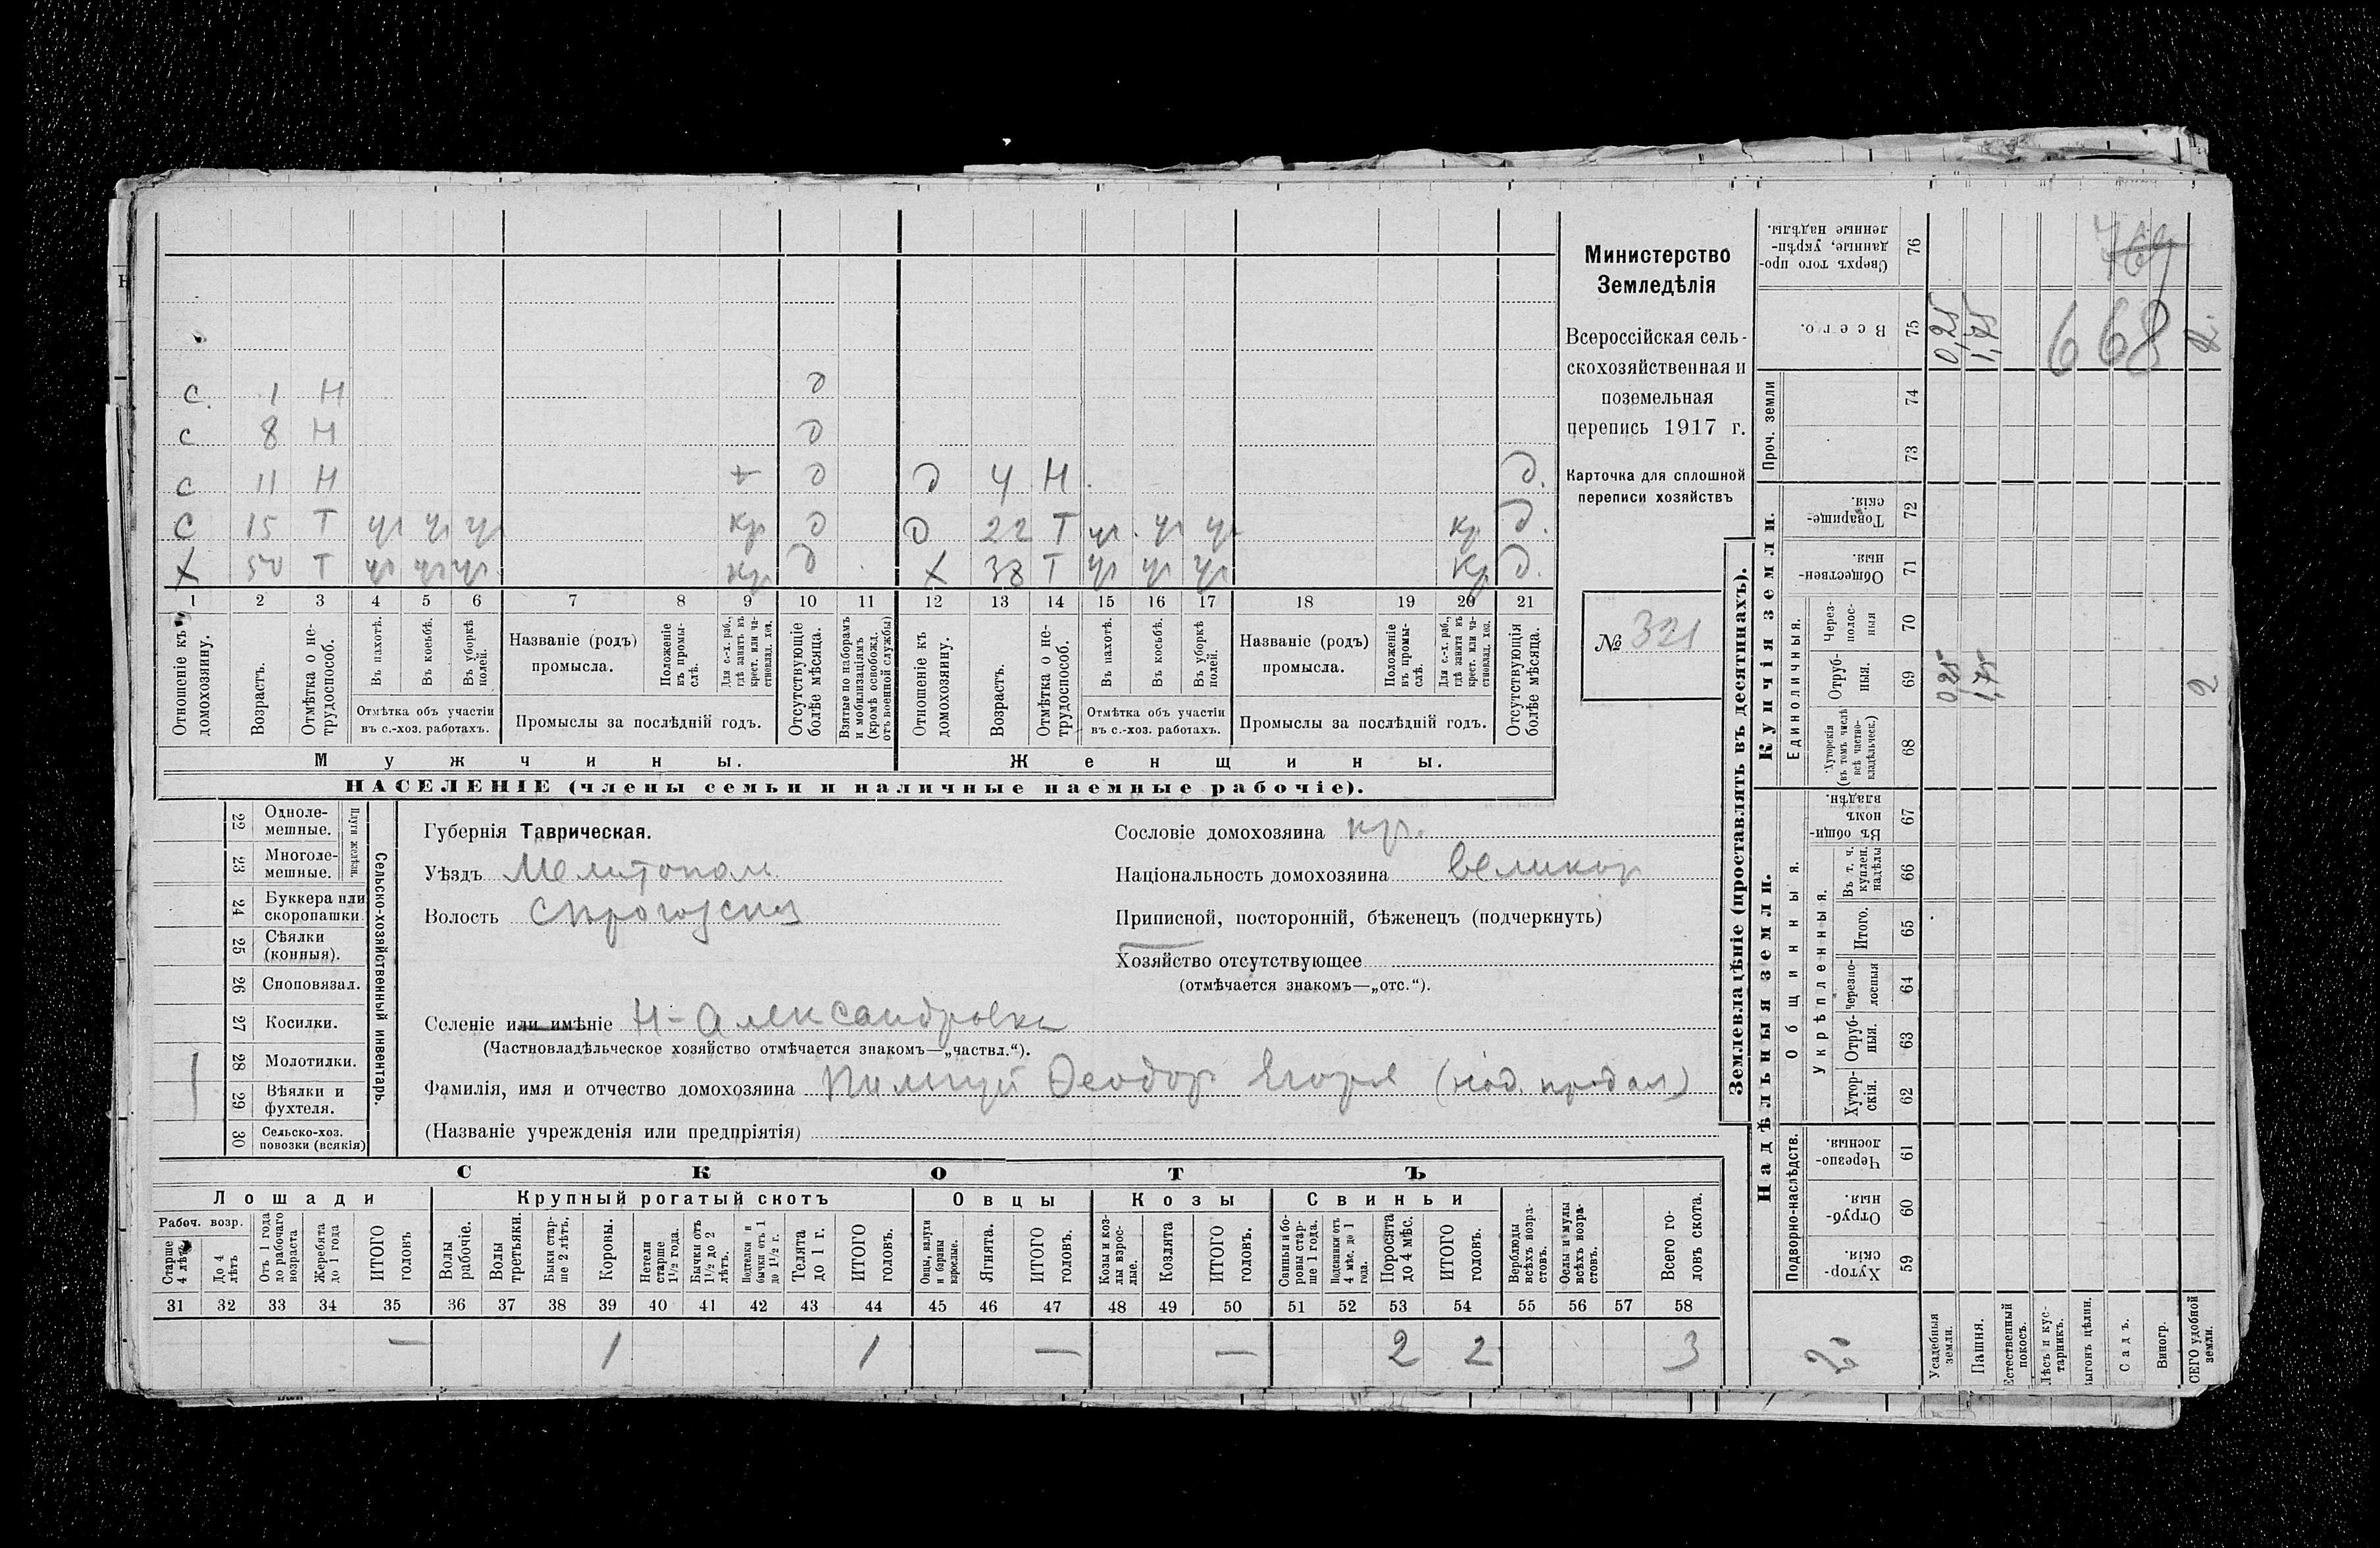 с. 1 Н д
с 8 Н д
с 11 Н + д д 4 Н д.
с 15 Т ч ч ч кр д д 22 Т ч ч ч кр д.
Х 50 Т ч ч ч кр д Х 38 Т ч ч ч кр д.
1 2 3 4 5 6 7 8 9 10 11 12 13 14 15 16 17 18 19 20 21
Отношеніе къ домохозяину.
Возрастъ.
Отмѣтка о не-трудоспособ.
Въ пахотѣ.
Въ косьбѣ.
Въ уборкѣ полей.
Отмѣтка объ участіи
въ с.-хоз. работахъ.
Названіе (родъ)
промысла.
Положеніе въ промы-слѣ.
Для с.-х. раб., гдѣ занятъ въ крест. или ча-стновлад. хоз.
Промыслы за послѣдній годъ.
Отсутствующіе болѣе мѣсяца.
Взятые по наборамъ и мобилизаціямъ (кромѣ освобожд. отъ военной службы)
Отношеніе къ домохозяину.
Возрастъ.
Отмѣтка о не-трудоспособ.
Въ пахотѣ.
Въ косьбѣ.
Въ уборкѣ полей.
Отмѣтка объ участіи
въ с.-хоз. работахъ.
Названіе (родъ)
промысла.
Положеніе въ промы-слѣ.
Для с.-х. раб., гдѣ занята въ крест. или ча-стновлад. хоз.
Промыслы за послѣдній годъ.
Отсутствующія болѣе мѣсяца.
Мужчины.
Женщины.
НАСЕЛЕНІЕ (члены семьи и наличные наемные рабочіе).
Министерство
Земледѣлія
Всероссійская сель-
скохозяйственная и
поземельная
перепись 1917 г.
Карточка для сплошной
переписи хозяйствъ
№ 321
22 Одноле-мешные.
23 Многоле-мешные.
Плуги желѣзн.
24 Буккера или скоропашки
25 Сѣялки (конныя).
26 Сноповязал.
27 Косилки.
28 Молотилки.
29 Вѣялки и фухтеля.
30 Сельско-хоз. повозки (всякія)
1
Сельско-хозяйственный инвентарь.
Губернія Таврическая.
Уѣздъ Мелитопол
Волость
Селеніе или имѣніе Н-Александровка
(Частновладѣльческое хозяйство отмѣчается знакомъ—„частвл.“).
Фамилія, имя и отчество домохозяина Феодор Егоров
(Названіе учрежденія или предпріятія)
Сословіе домохозяина кр.
Національность домохозяина великор
Приписной, посторонній, бѣженецъ (подчеркнуть)
Хозяйство отсутствующее
(отмѣчается знакомъ—„отс.“).
СКОТЪ
Лошади
Крупный рогатый скотъ
Овцы
Козы
Свиньи
Рабоч. возр.
Старше 4 лѣтъ
До 4 лѣтъ
Отъ 1 года до рабочаго возраста
Жеребята до 1 года
ИТОГО головъ
Волы рабочіе.
Волы третьяки.
Быки стар-ше 2 лѣтъ.
Коровы.
Нетели старше 1½ года.
Бычки отъ 1½ до 2 лѣтъ.
Подтелки и бычки отъ 1 до 1½ г.
Телята до 1 г.
ИТОГО головъ.
Овцы, валухи и бараны взрослые.
Ягнята.
ИТОГО головъ.
Козы и коз-лы взрос-лые.
Козлята
ИТОГО головъ.
Свиньи и бо-ровы стар-ше 1 года.
Подсвинки отъ 4 мѣс. до 1 года.
Поросята до 4 мѣс.
ИТОГО головъ.
Верблюды всѣхъ возра-стовъ.
Ослы и мулы всѣхъ возра-стовъ.
Всего го-ловъ скота.
31 32 33 34 35 36 37 38 39 40 41 42 43 44 45 46 47 48 49 50 51 52 53 54 55 56 57 58
— 1 1 — — 2 2 3
Землевладѣніе (проставлять въ десятинахъ).
Надѣльныя земли.
Купчія земли.
Проч. земли
Подворно-наслѣдств.
Общинныя.
Укрѣпленныя.
Единоличныя.
Сверхъ того про-данные, укрѣп-ленные надѣлы. 76
Всего. 75 0,25 1,75 2.
668
74
73
Товарище-скія. 72
Обществен-ныя. 71
Через-полос-ныя 70
Отруб-ныя. 69 0,25 1,75 2
Хуторскія (въ томъ числѣ всѣ частно-владѣльческ.) 68
Въ общин-номъ владѣн. 67
Въ т. ч. куплен. надѣлы 66
Итого. 65
Черезпо-лосныя 64
Отруб-ныя. 63
Хутор-скія. 62
Черезпо-лосныя. 61
Отруб-ныя. 60
Хутор-скія. 59
2
Усадебныя земли.
Пашня.
Естественный покосъ.
Лѣсъ и кус-тарникъ.
Выгонъ цѣлин.
Садъ.
Виногр.
ВСЕГО удобной земли.